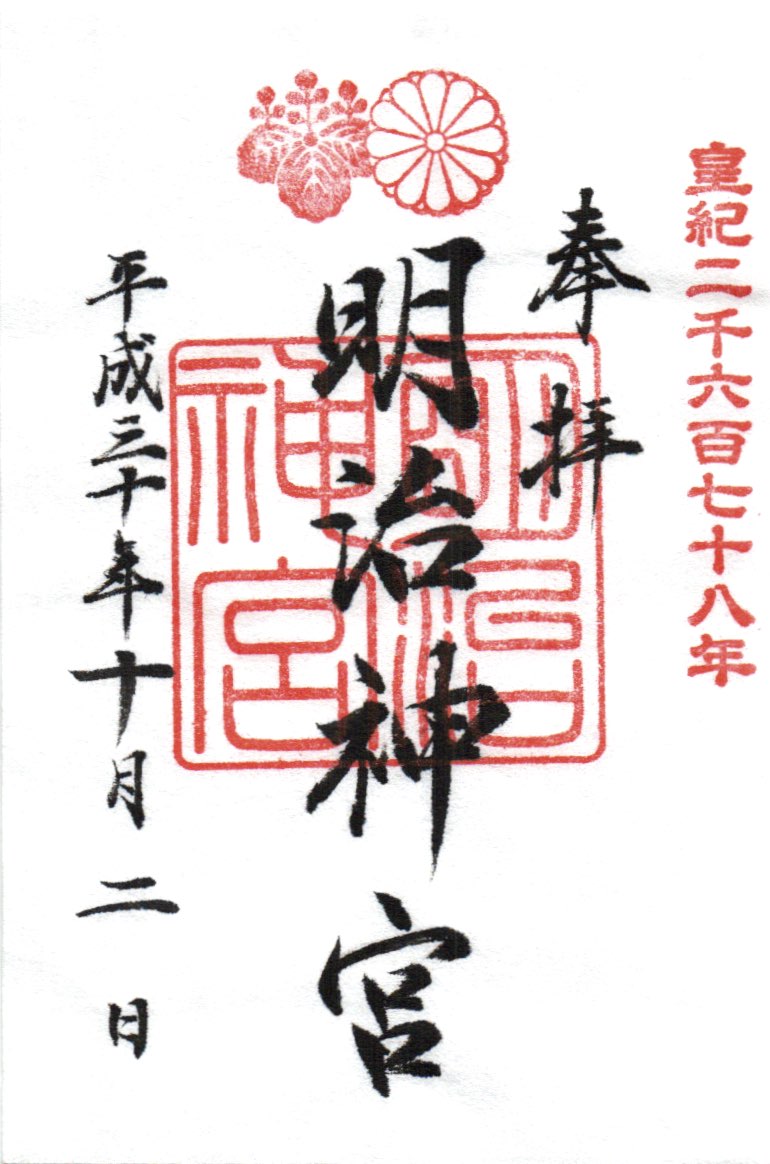 皇紀二千六百七十八年
奉拝
明治神宮
明治神宮
平成三十年十月二日